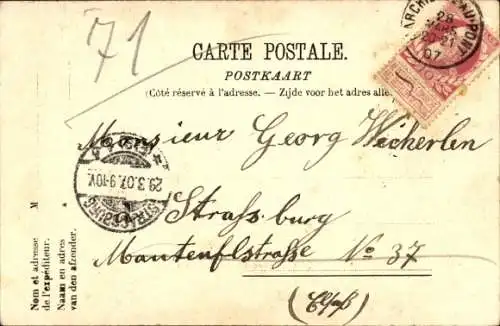 71
CARTE POSTALE.
POSTKAART
(Côté réservé à l'adresse. — Zijde voor het adres
MARCHIENNE-AU-PONT
28
MARS
20-21
07
Monsieur Georg Weckerlen
STRASSBURG
29.3.07.9-10V.
Strassburg
Manteuflstrasse No 37
(Elsaß)
M
Nom et adresse
de l'expéditeur.
Naam en adres
van den afzender.